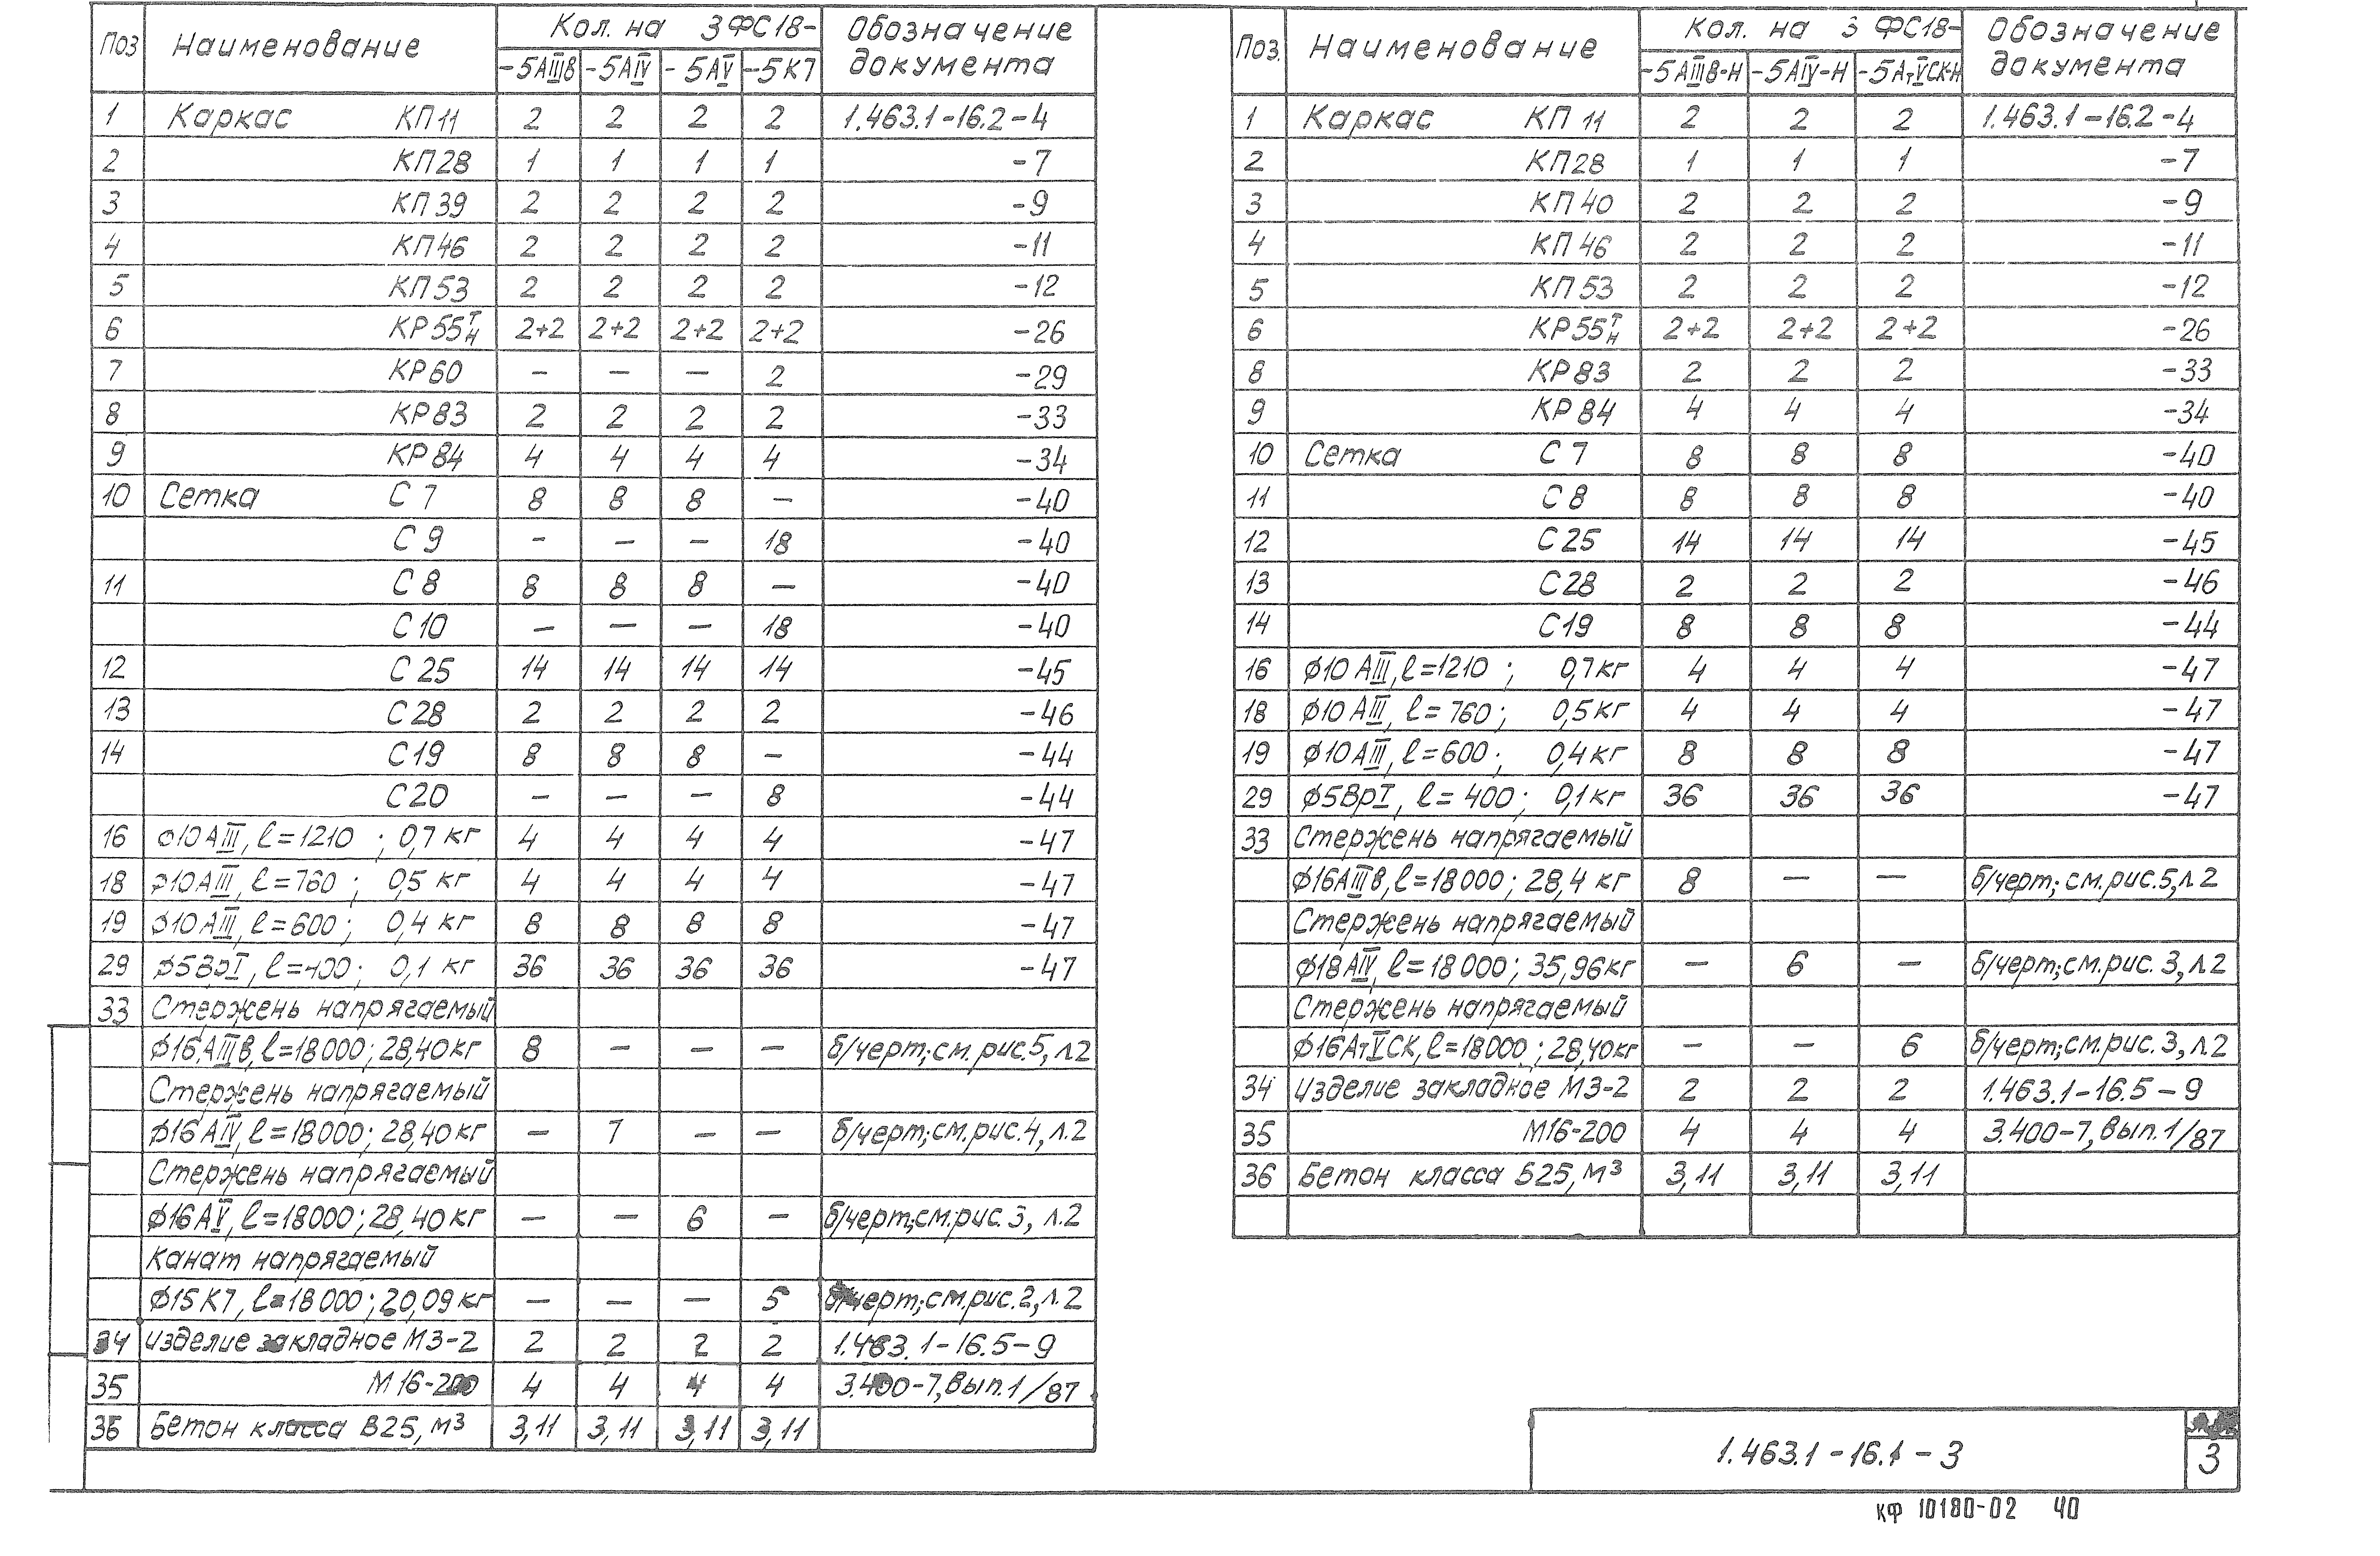 Поз Наименование Кол. на 3ФС18- Обозначение документа
-5АIIIв -5АIV -5АV -5К7
1 Каркас КП11 2 2 2 2 1.463.1-16.2-4
2 КП28 1 1 1 1 -7
3 КП39 2 2 2 2 -9
4 КП46 2 2 2 2 -11
5 КП53 2 2 2 2 -12
6 КР55 Т/Н 2+2 2+2 2+2 2+2 -26
7 КР60 — — — 2 -29
8 КР83 2 2 2 2 -33
9 КР84 4 4 4 4 -34
10 Сетка С7 8 8 8 — -40
С9 — — — 18 -40
11 С8 8 8 8 — -40
С10 — — — 18 -40
12 С25 14 14 14 14 -45
13 С28 2 2 2 2 -46
14 С19 8 8 8 — -44
С20 — — — 8 -44
16 ϕ10АIII, ℓ=1210 ; 0,7 кг 4 4 4 4 -47
18 ϕ10АIII, ℓ=760 ; 0,5 кг 4 4 4 4 -47
19 ϕ10АIII, ℓ=600 ; 0,4 кг 8 8 8 8 -47
29 ϕ5ВрI, ℓ=400 ; 0,1 кг 36 36 36 36 -47
33 Стержень напрягаемый
ϕ16АIIIв, ℓ=18000; 28,40кг 8 — — — б/черт; см. рис.5, л.2
Стержень напрягаемый
ϕ16АIV, ℓ=18000; 28,40кг — 7 — — б/черт; см. рис.4, л.2
Стержень напрягаемый
ϕ16АV, ℓ=18000; 28,40кг — — 6 — б/черт; см. рис. 3, л.2
Канат напрягаемый
ϕ15К7, ℓ=18000; 20,09кг — — — 5 б/черт; см. рис.2, л.2
34 Изделие закладное М3-2 2 2 2 2 1.463.1-16.5-9
35 М16-200 4 4 4 4 3.400-7, вып.1/87
36 Бетон класса В25, м³ 3,11 3,11 3,11 3,11
Поз. Наименование Кол. на 3ФС18- Обозначение документа
-5АIIIв-Н -5АIV-Н -5АтVСК-Н
1 Каркас КП11 2 2 2 1.463.1-16.2-4
2 КП28 1 1 1 -7
3 КП40 2 2 2 -9
4 КП46 2 2 2 -11
5 КП53 2 2 2 -12
6 КР55 Т/Н 2+2 2+2 2+2 -26
8 КР83 2 2 2 -33
9 КР84 4 4 4 -34
10 Сетка С7 8 8 8 -40
11 С8 8 8 8 -40
12 С25 14 14 14 -45
13 С28 2 2 2 -46
14 С19 8 8 8 -44
16 ϕ10АIII, ℓ=1210 ; 0,7кг 4 4 4 -47
18 ϕ10АIII, ℓ=760; 0,5кг 4 4 4 -47
19 ϕ10АIII, ℓ=600; 0,4кг 8 8 8 -47
29 ϕ5ВрI, ℓ=400; 0,1кг 36 36 36 -47
33 Стержень напрягаемый
ϕ16АIIIв, ℓ=18000; 28,4 кг 8 — — б/черт; см. рис.5, л.2
Стержень напрягаемый
ϕ18АIV, ℓ=18000; 35,96кг — 6 — б/черт; см. рис. 3, л.2
Стержень напрягаемый
ϕ16АтVСК, ℓ=18000; 28,40кг — — 6 б/черт; см. рис. 3, л.2
34 Изделие закладное М3-2 2 2 2 1.463.1-16.5-9
35 М16-200 4 4 4 3.400-7, вып.1/87
36 Бетон класса В25, м³ 3,11 3,11 3,11
1.463.1-16.1-3
3
КФ 10180-02 40